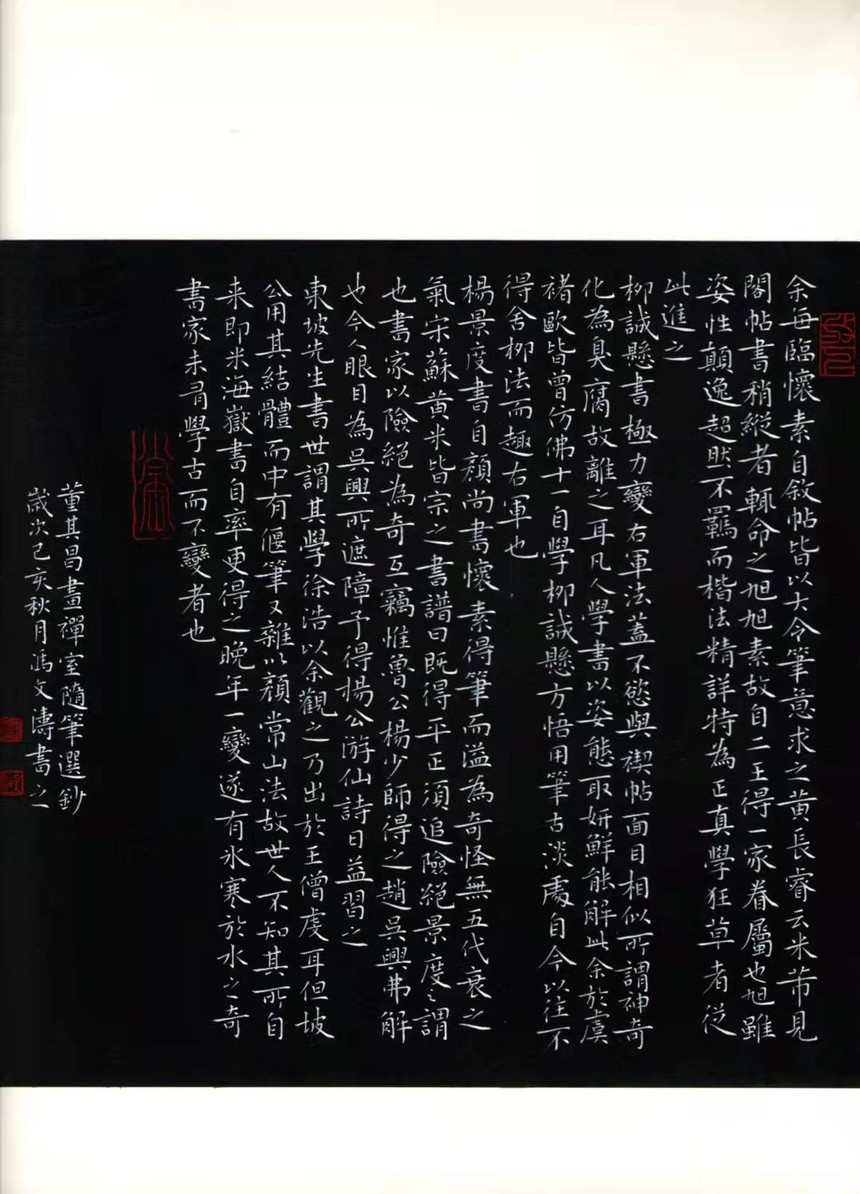 余每臨懷素自敘帖皆以大令筆意求之黃長睿云米芾見
閣帖書稍縱者輒命之旭旭素故自二王得一家眷屬也旭雖
姿性顛逸超然不羈而楷法精詳特為正真學狂草者從
此進之
柳誠懸書極力變右軍法蓋不欲與禊帖面目相似所謂神奇
化為臭腐故離之耳凡人學書以姿態取妍鮮能解此余於虞
褚歐皆曾仿佛十一自學柳誠懸方悟用筆古淡處自今以往不
得舍柳法而趣右軍也
楊景度書自顏尚書懷素得筆而溢為奇怪無五代衰之
氣宋蘇黃米皆宗之書譜曰既得平正須追險絕景度之謂
也書家以險絕為奇互竊惟魯公楊少師得之趙吳興弗解
也今人眼目為吳興所遮障予得楊公游仙詩日益習之
東坡先生書世謂其學徐浩以余觀之乃出於王僧虔耳但坡
公用其結體而中有偃筆又雜以顏常山法故世人不知其所自
来即米海嶽書自率更得之晚年一變遂有氷寒於水之奇
書家未有學古而不變者也
董其昌畫禪室隨筆選鈔
歲次己亥秋月馮文濤書之